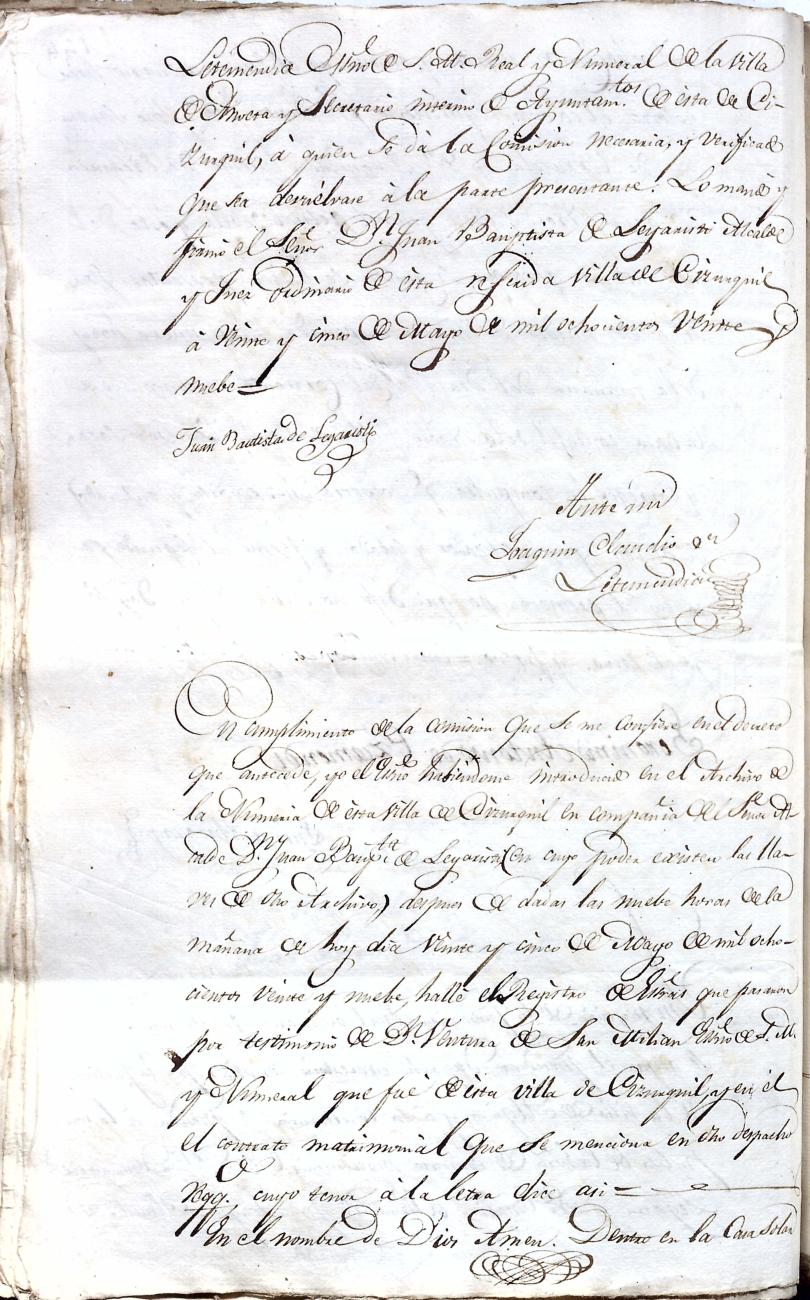 Letemendia Esno. de S. M. Real y Numeral de la Villa
de Anoeta y Secretario interino de Ayuntam.tos de esta de Ci-
zurquil, á quien se dá la Comision necesaria, y verificado
que sea devuelvase à la parte presentante. Lo mandó y
firmó el Señor Dn. Juan Bauptista de Leyaristi Alcalde
y Juez ordinario de esta referida Villa de Cizurquil
à veinte y cinco de Mayo de mil ochocientos veinte y
nuebe =
Juan Bautista de Leyaristi
Ante mi
Joaquin Claudio de
Letemendia
En cumplimiento de la comision que se me confiere en el decreto
que antecede, yo el Esno. habiendome introducido en el Archivo de
la Numeria de esta Villa de Cizurquil en compañia del Señor Al-
calde Dn. Juan Baup.ta de Leyaristi (en cuyo poder existen las lla-
ves de dho Archivo,) despues de dadas las nuebe horas de la
mañana de hoy dia veinte y cinco de Mayo de mil ocho-
cientos veinte y nuebe, hallé el Registro de Esras que pasaron
por testimonio de Dn. Ventura de San Millan Esno. de S. M.
y Numeral que fué de esta villa de Cizurquil, y en él
el contrato matrimonial que se menciona en dho despacho
cuyo tenor à la letra dice asi =
En el nombre de Dios Amen. Dentro en la Casa Solar